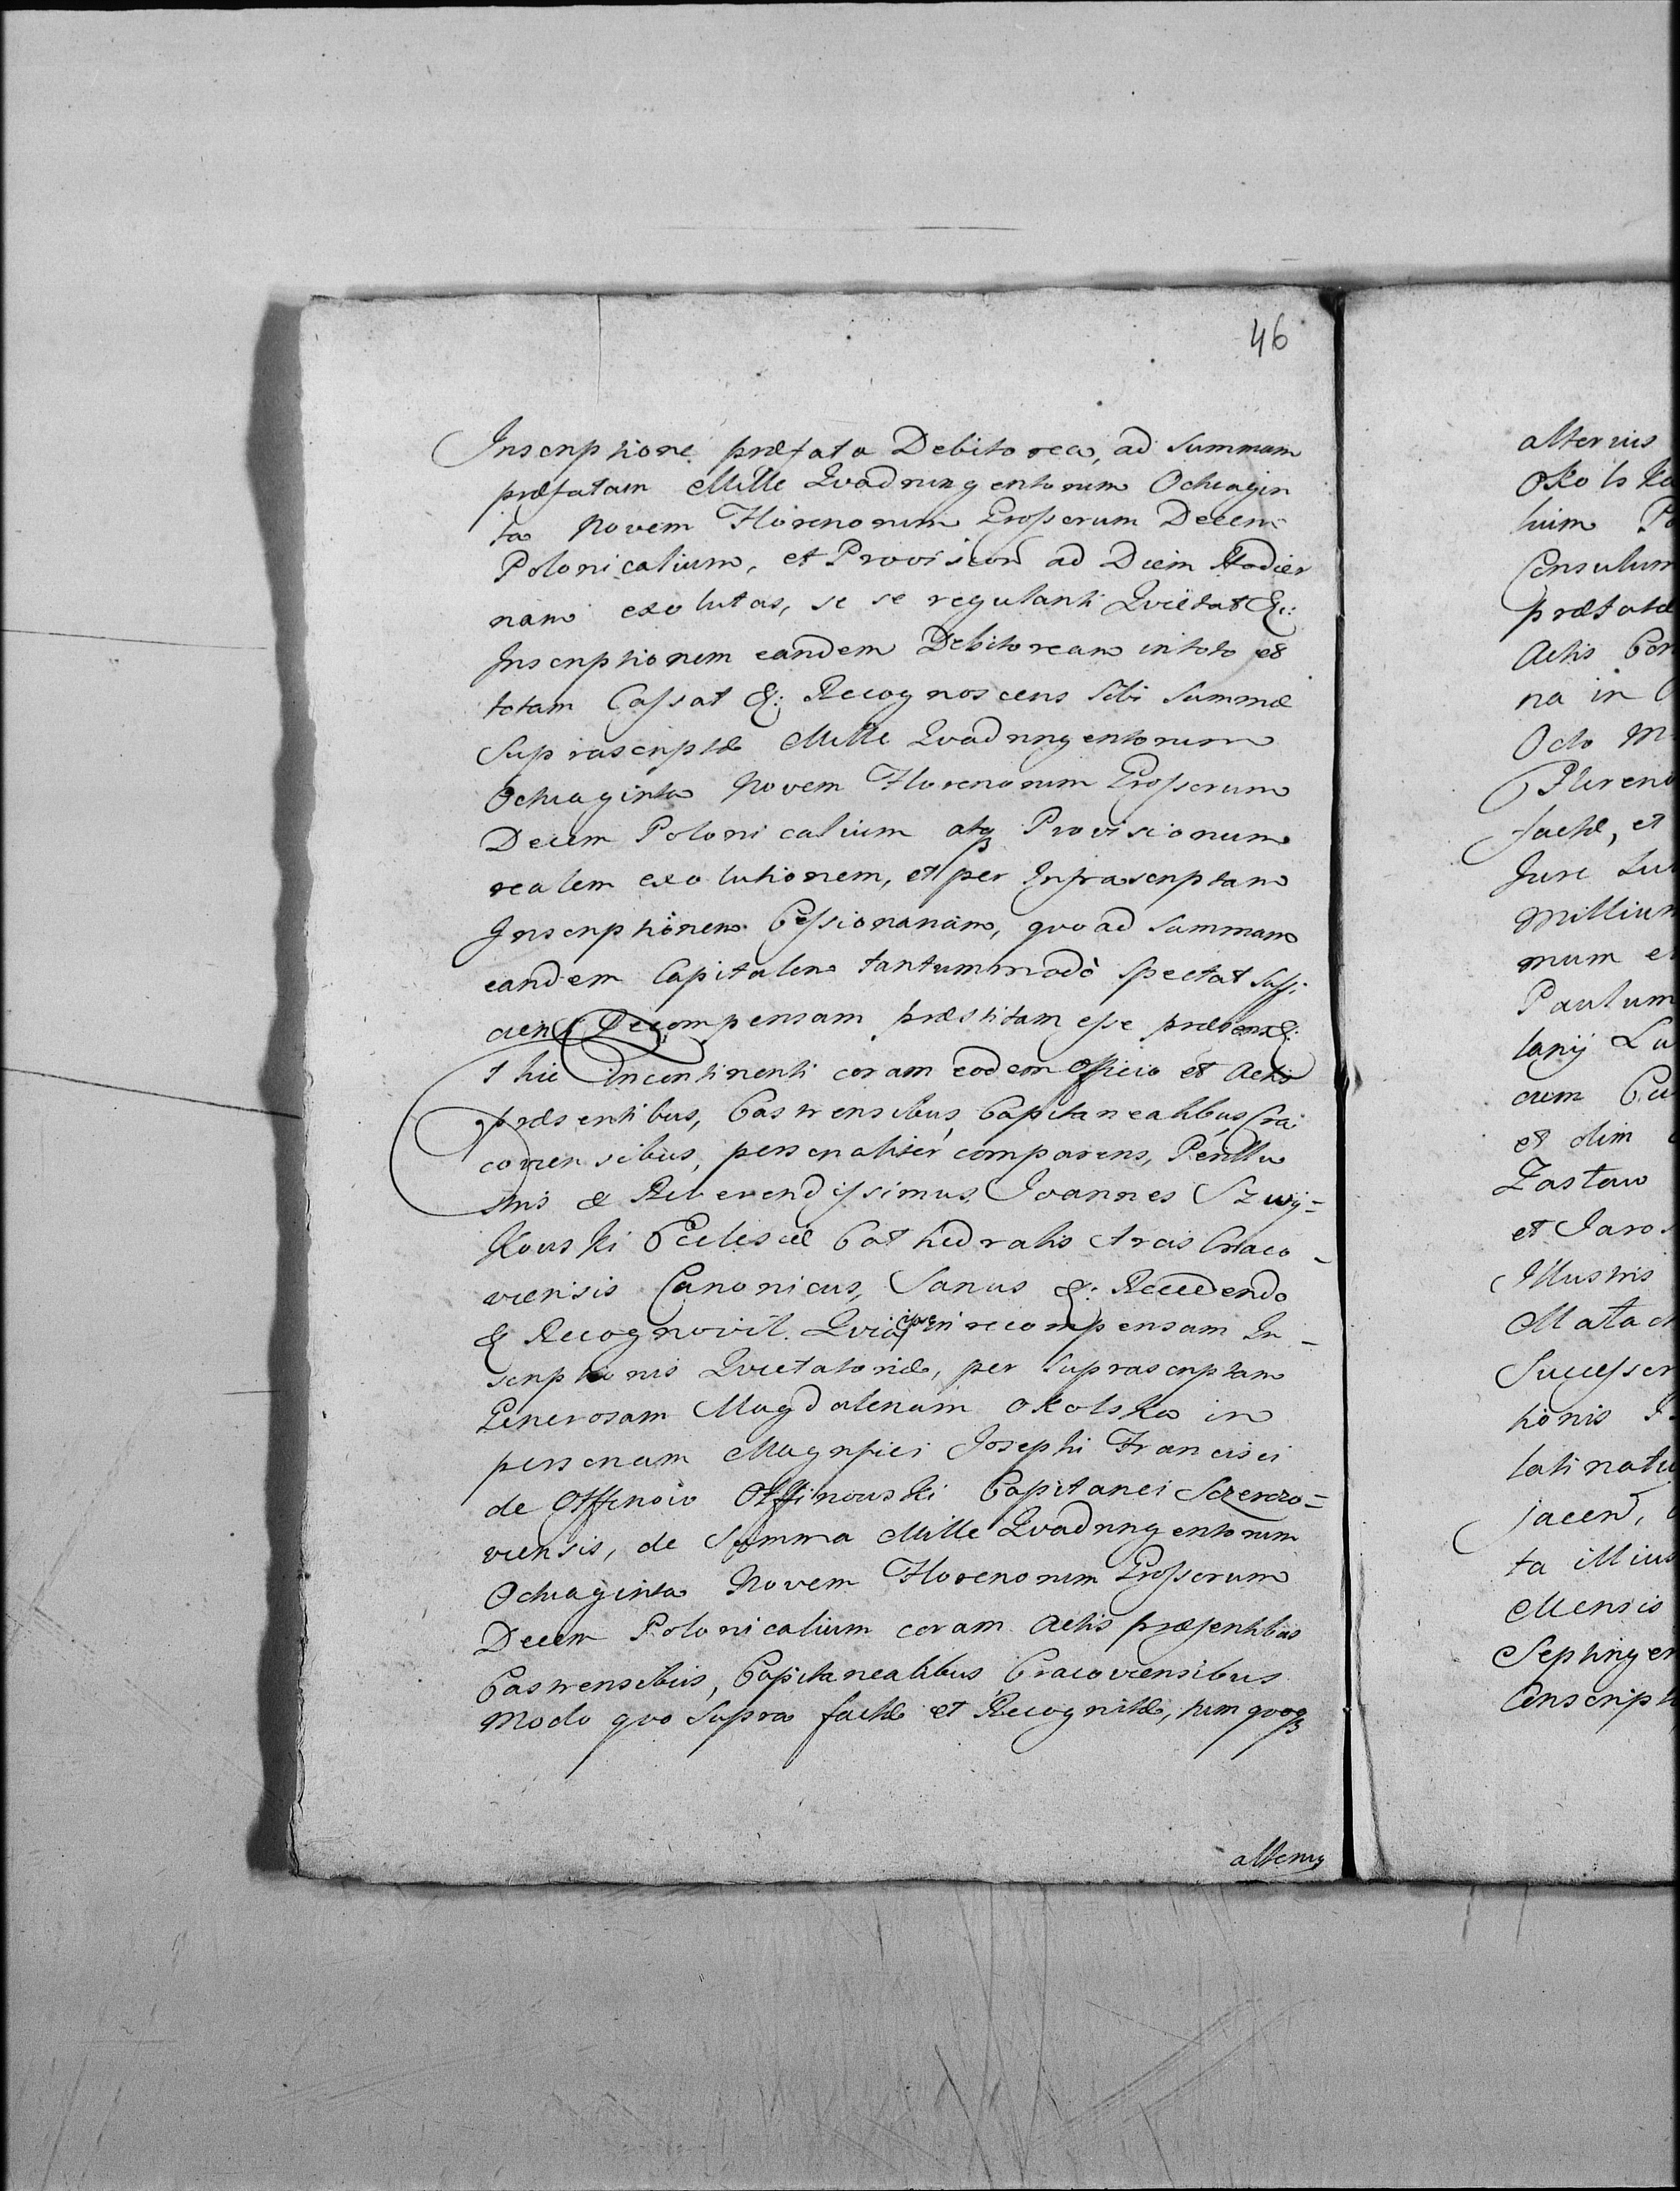 46
Inscriptione præfata Debitorea, ad Summam
præfatam Mille Qvadringentorum Octuagin
ta Novem Florenorum Grosserum Decem
Polonicalium, et Provision ad Diem Hodier
nam exolutas, se se regulanti Qvietat &c:
Inscriptionem eandem Debitoream in toto et
totam Cassat &: Recognoscens Sibi Summæ
Suprascriptæ Mille Qvadringentorum
Octuaginta Novem Florenorum Grosserum
Decem Polonicalium atq Provisionum
realem exolutionem, et per Infrascriptam
Inscriptionem Cessionariam, quo ad Summam
eandem Capitalem tantummodò Spectat Suffi
cien Recompensam præstitam esse præsen&:
Et hic incontinenti coram eodem Officio et Actis
præsentibus, Castrensibus, Capitanealibus, Cra
coviensibus, personaliter comparens, Perillu
stris & Reverendissimus, Joannes Szwÿ-
kowski Ecclesiæ Cathedralis Arcis Craco-
viensis Canonicus, Sanus &: Recedendo
& Recognovit. Qvia ipse in recompensam In-
scriptionis Qvietatoriæ, per Suprascriptam
Generosam Magdalenam Okolska in
personam Magnifici Josephi Francisci
de Offinow Offinowski Capitanei Sczerczo-
viensis, de Summa Mille Qvadringentorum
Octuaginta Novem Florenorum Grosserum
Decem Polonicalium coram Actis præsentibus
Castrensibus, Capitanealibus Cracoviensibus
Modo quo Supra factæ et Recognitæ, tum quoq
alterius
alterius
Okolska
Consulum
præfatæ
Actis
na in
Octo
factæ, et
Jure
Millium
mum
Paulum
et olim
et Jaro
Illustris
Successor
tionis
jacen,
ta illius
Mensis
Septingen